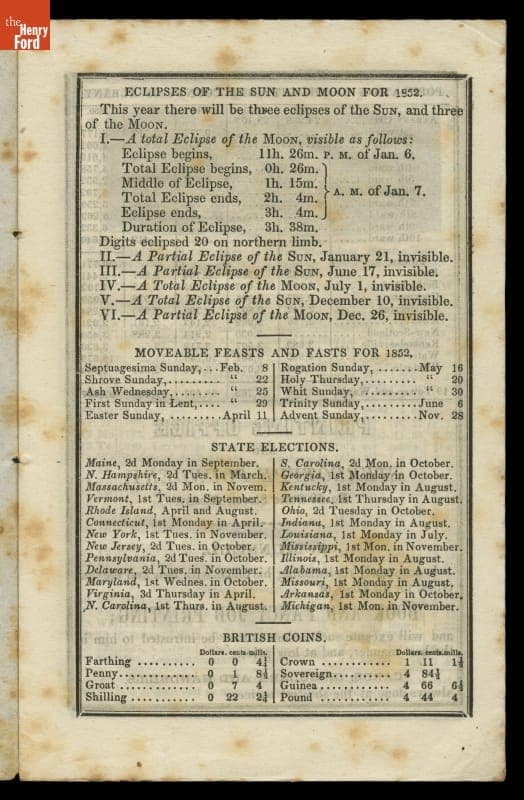 the
Henry
Ford
ECLIPSES OF THE SUN AND MOON FOR 1852.
This year there will be three eclipses of the SUN, and three
of the MOON.
I.—A total Eclipse of the MOON, visible as follows:
Eclipse begins, 11h. 26m. P. M. of Jan. 6.
Total Eclipse begins, 0h. 26m.
Middle of Eclipse, 1h. 15m.
Total Eclipse ends, 2h. 4m.
A. M. of Jan. 7.
Eclipse ends, 3h. 4m.
Duration of Eclipse, 3h. 38m.
Digits eclipsed 20 on northern limb.
II.—A Partial Eclipse of the SUN, January 21, invisible.
III.—A Partial Eclipse of the SUN, June 17, invisible.
IV.—A Total Eclipse of the MOON, July 1, invisible.
V.—A Total Eclipse of the SUN, December 10, invisible.
VI.—A Partial Eclipse of the MOON, Dec. 26, invisible.
MOVEABLE FEASTS AND FASTS FOR 1852.
Septuagesima Sunday,...Feb. 8
Shrove Sunday,......... " 22
Ash Wednesday,......... " 25
First Sunday in Lent,.... " 29
Easter Sunday, ........April 11
Rogation Sunday, .......May 16
Holy Thursday,......... " 20
Whit Sunday, .......... " 30
Trinity Sunday,........June 6
Advent Sunday,........Nov. 28
STATE ELECTIONS.
Maine, 2d Monday in September.
N. Hampshire, 2d Tues. in March.
Massachusetts, 2d Mon. in Novem.
Vermont, 1st Tues. in September.
Rhode Island, April and August.
Connecticut, 1st Monday in April.
New York, 1st Tues. in November.
New Jersey, 2d Tues. in October.
Pennsylvania, 2d Tues. in October.
Delaware, 2d Tues. in November.
Maryland, 1st Wednes. in October.
Virginia, 3d Thursday in April.
N. Carolina, 1st Thurs. in August.
S. Carolina, 2d Mon. in October.
Georgia, 1st Monday in October.
Kentucky, 1st Monday in August.
Tennessee, 1st Thursday in August.
Ohio, 2d Tuesday in October.
Indiana, 1st Monday in August.
Louisiana, 1st Monday in July.
Mississippi, 1st Mon. in November.
Illinois, 1st Monday in August.
Alabama, 1st Monday in August.
Missouri, 1st Monday in August.
Arkansas, 1st Monday in October.
Michigan, 1st Mon. in November.
BRITISH COINS.
Dollars. cents. mills.
Farthing .......... 0 0 4¼
Penny............. 0 1 8½
Groat ............ 0 7 4
Shilling ........... 0 22 2¼
Dollars. cents. mills.
Crown ............ 1 11 1½
Sovereign.......... 4 84½
Guinea ............ 4 66 6½
Pound ............ 4 44 4